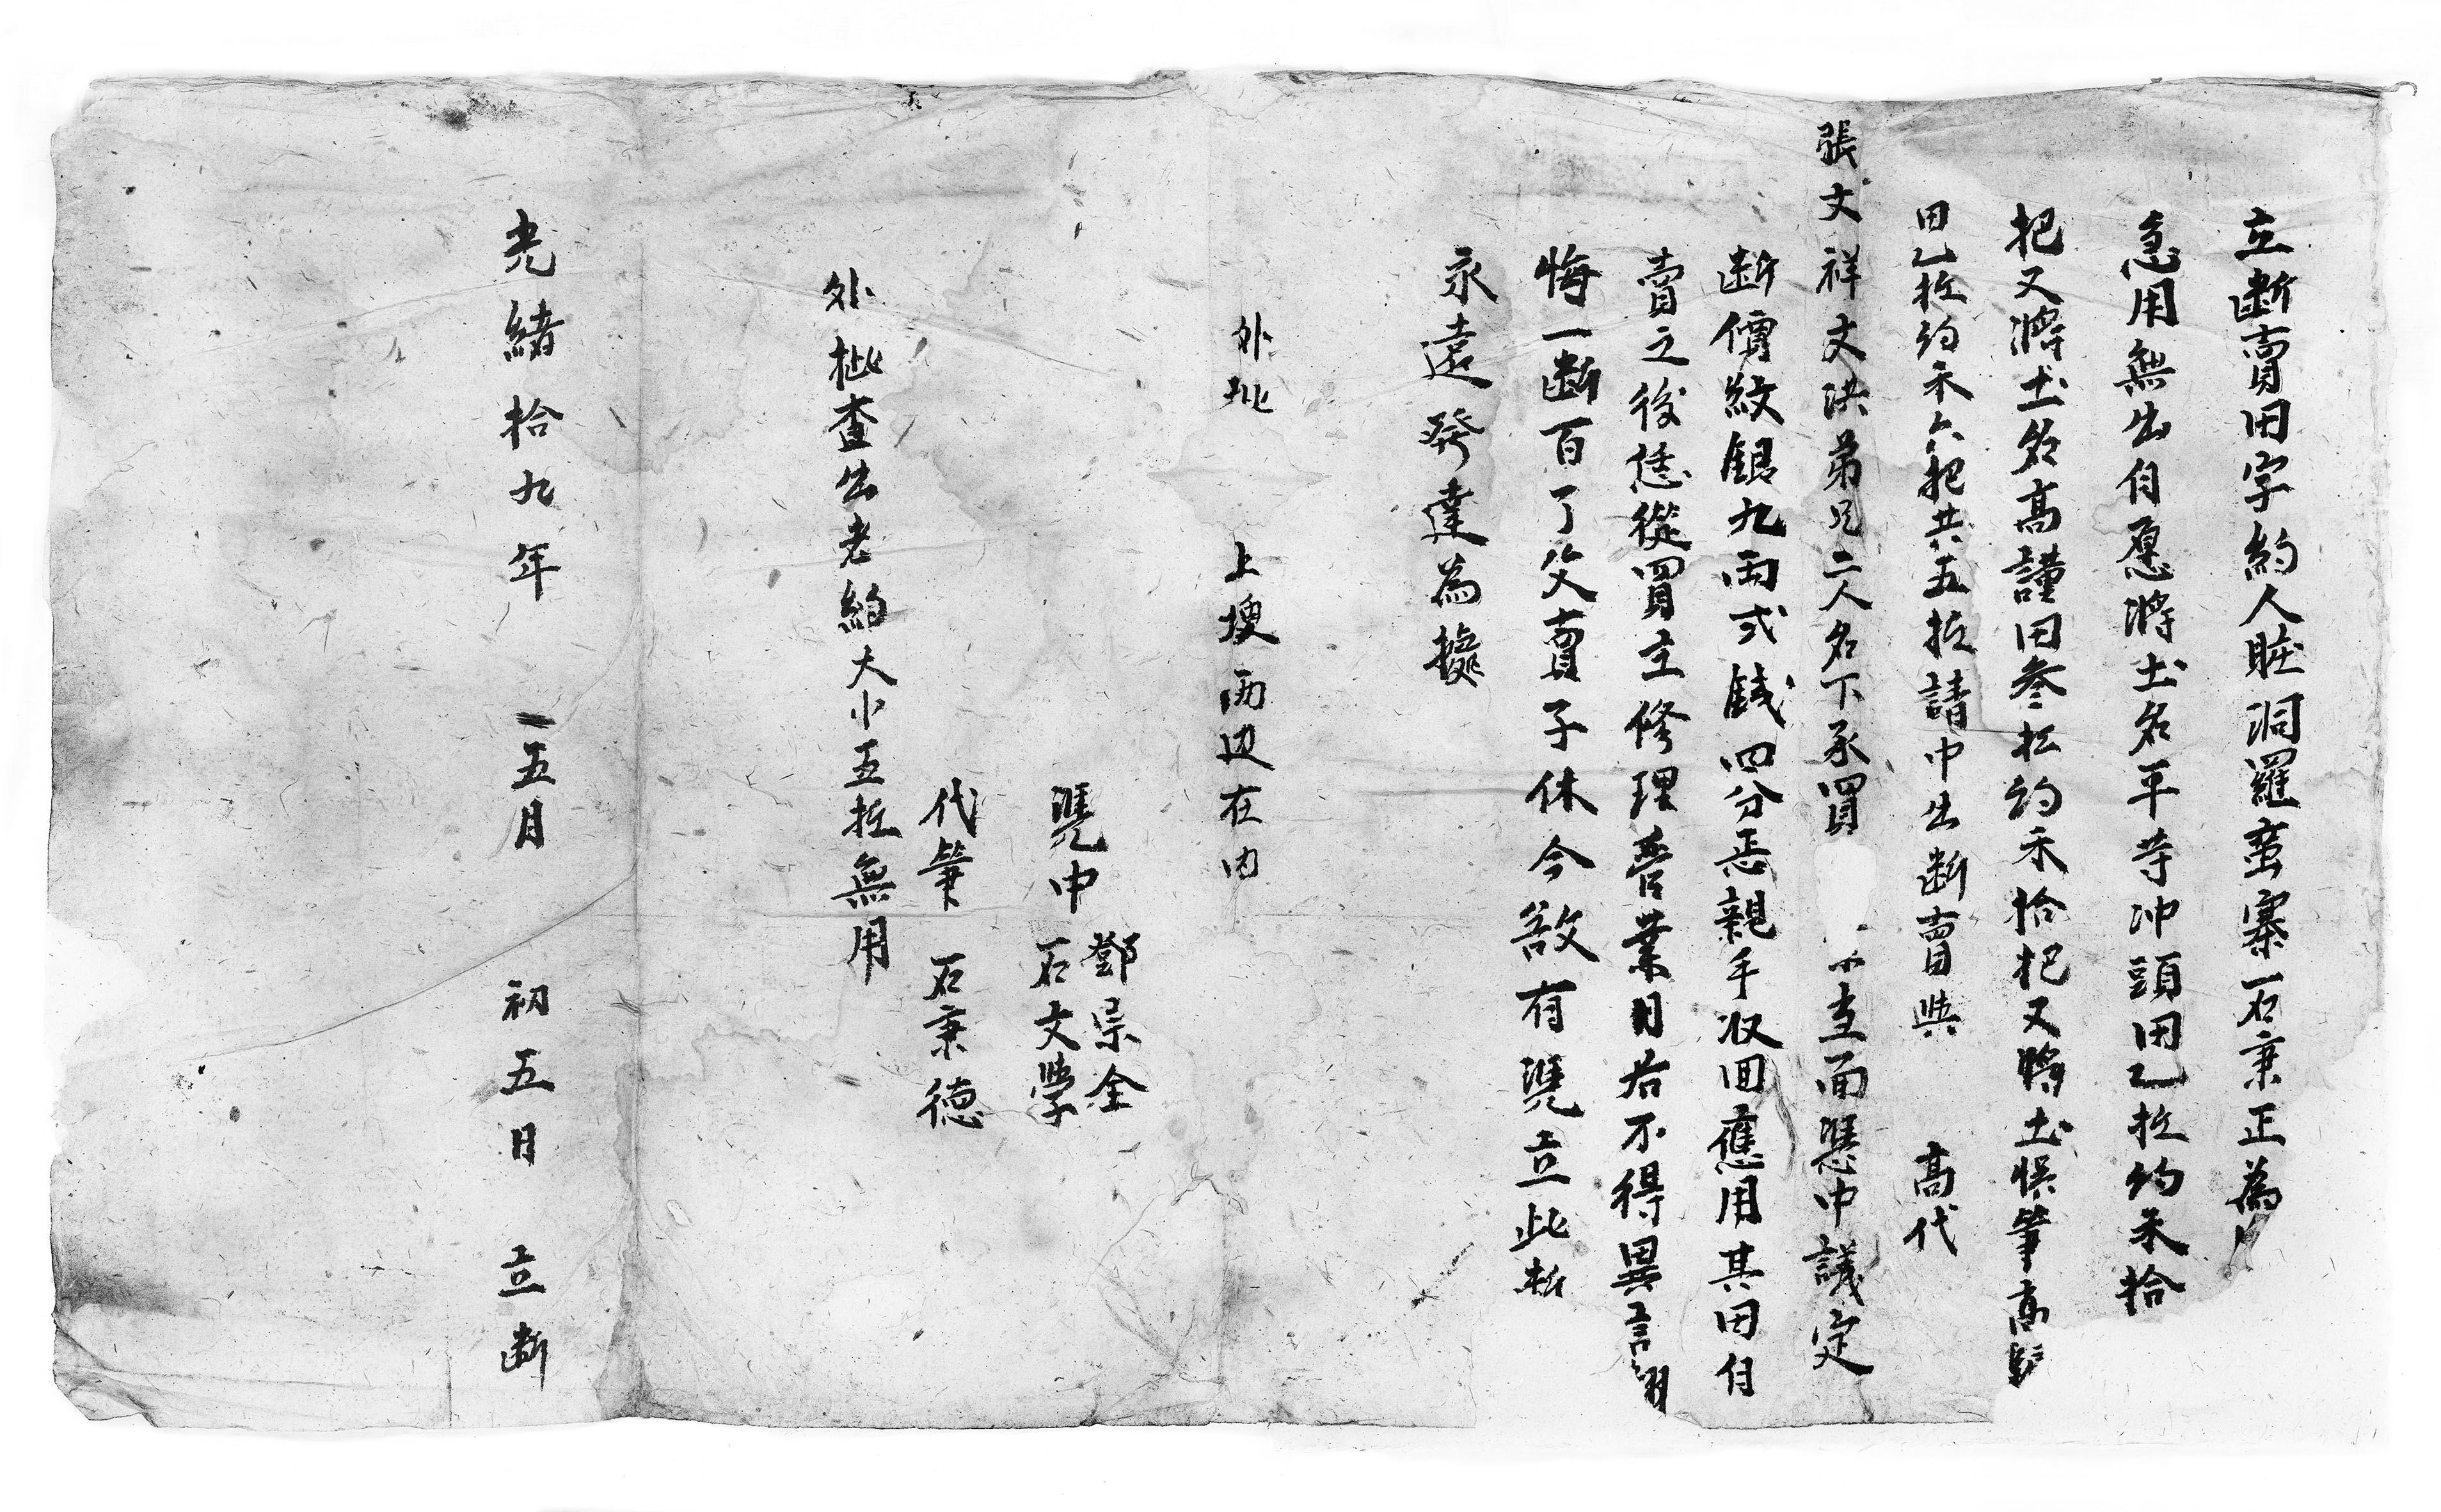 立斷賣田字約人賍洞羅蛮寨石秉正為
急用無出自愿將土名平寺冲頭田乙坵約禾拾
把又將土名高謹田叁坵約禾拾把又將土悮筆高
田乙坵約禾六把共五坵請中出斷賣與 高代
張文祥文洪弟兄二人名下承買 當面憑中議定
斷價紋銀九両弍錢四分恁親手収回應用其田自
賣之後恁從買主修理管業日若不得異言翻
悔一斷百了父賣子休今欲有憑立此斷
永遠發達為據
外批 上塝両边在内
憑中 鄧宗全
石文學
代筆 石秉德
外批查出老約大小五坵無用
光緒拾九年 五月 初五日 立斷